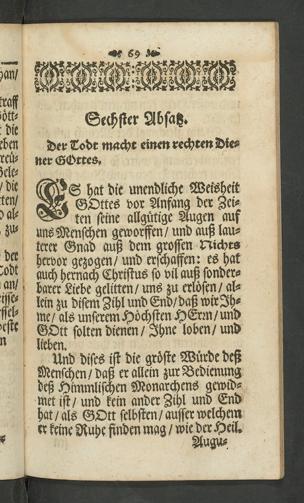 69
Sechster Absatz.
Der Todt macht einen rechten Die-
ner GOttes.
ES hat die unendliche Weisheit
GOttes vor Anfang der Zei-
ten seine allgütige Augen auf
uns Menschen geworffen / und auß lau-
terer Gnad auß dem grossen Nichts
hervor gezogen / und erschaffen: es hat
auch hernach Christus so vil auß sonder-
barer Liebe gelitten / uns zu erlösen / al-
lein zu disem Zihl und End / daß wir Jh-
me / als unserem Höchsten HErrn / und
GOtt solten dienen / Jhne loben / und
lieben.
Und dises ist die gröste Würde deß
Menschen / daß er allein zur Bedienung
deß Himmlischen Monarchens gewid-
met ist / und kein ander Zihl und End
hat / als GOtt selbsten / ausser welchem
er keine Ruhe finden mag / wie der Heil.
Augu-